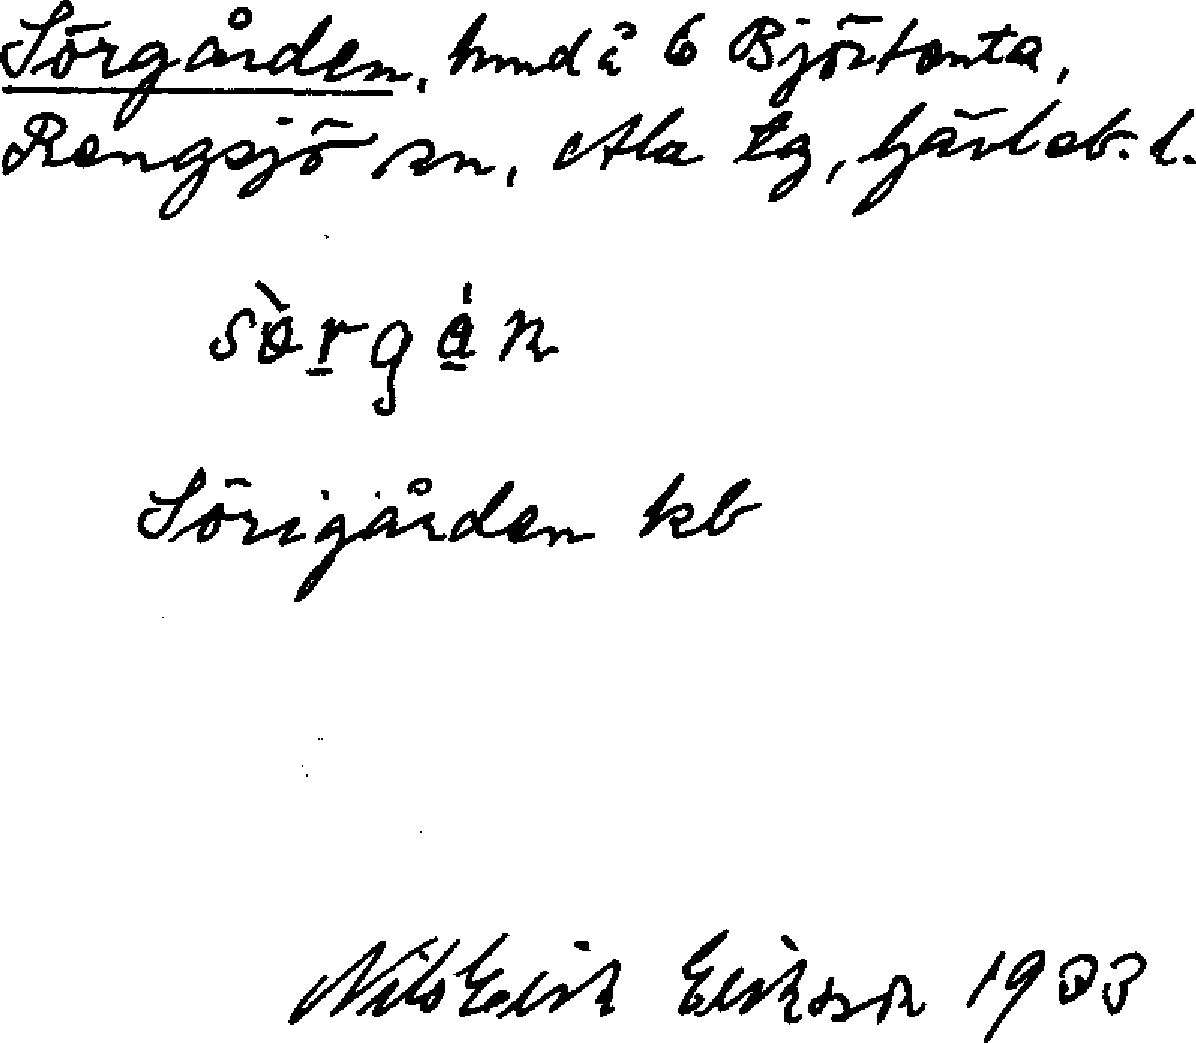 Sörgården, hmd å 6 Björtomta,
Rengsjö sn, Ala tg, Gävleb. l.
sòrgá̱n
Sörigården kb
Nils Erik Eriksson 1933